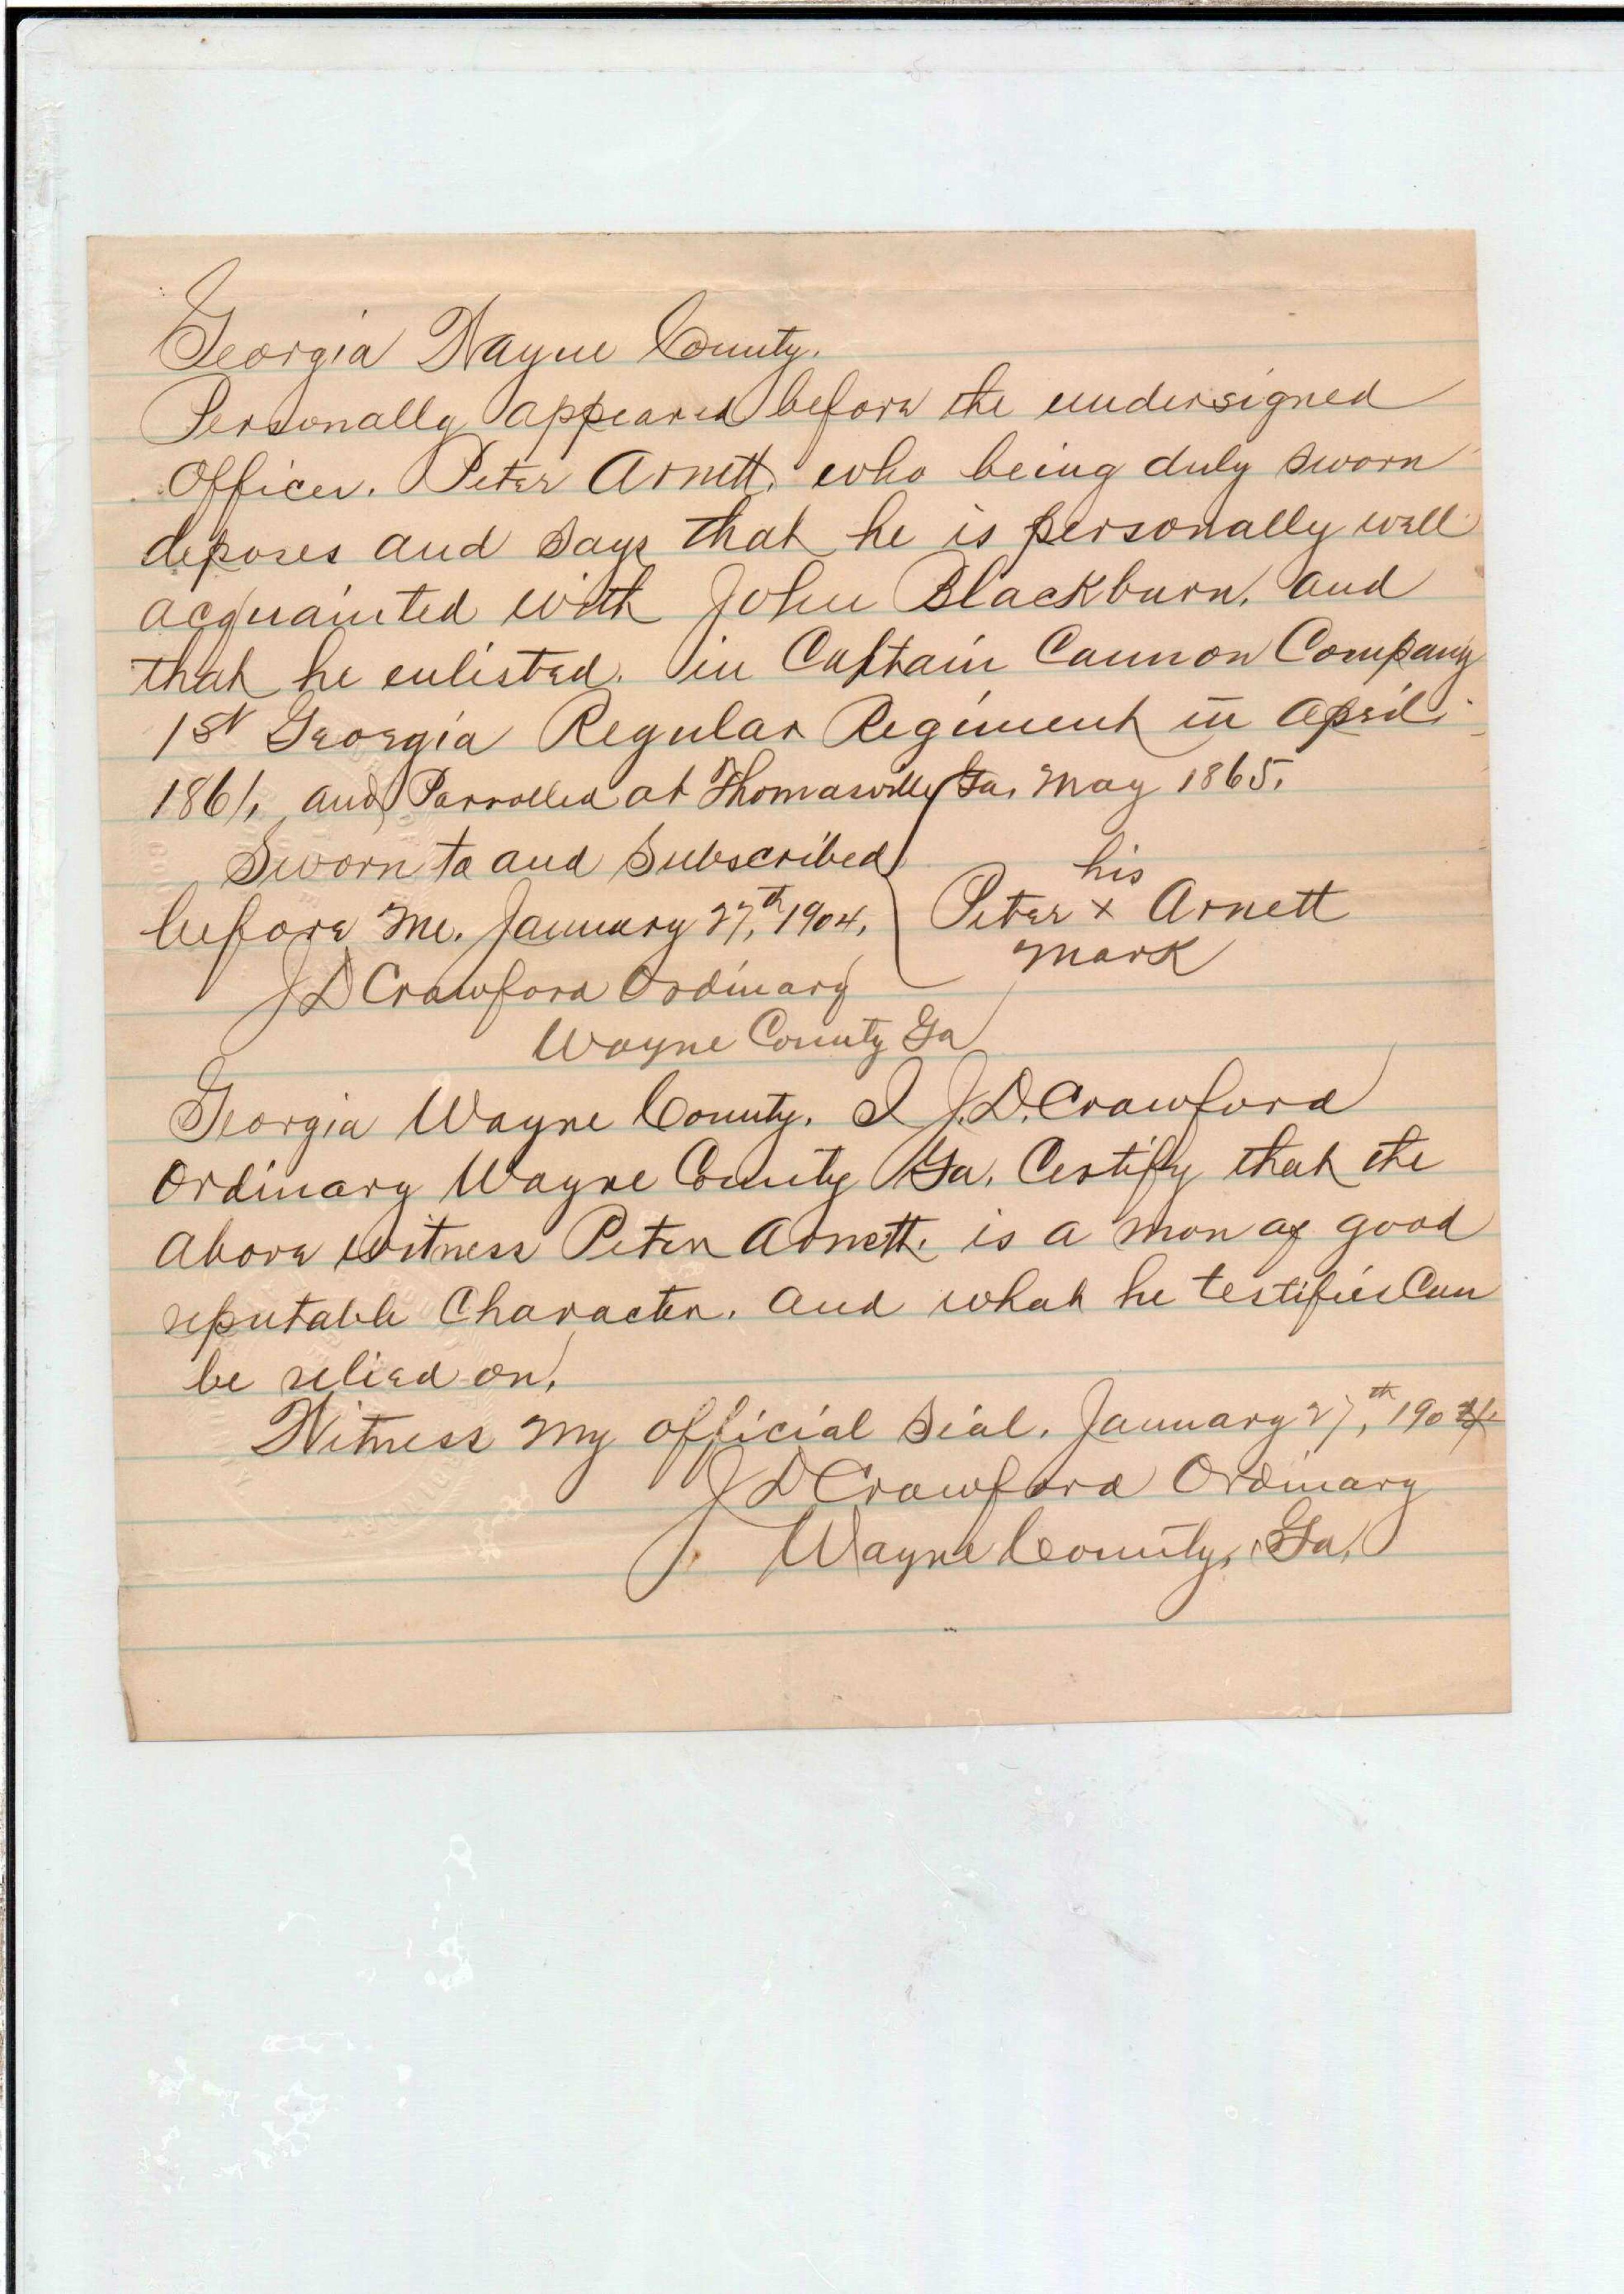 Georgia Wayne County.
Personally appeared before the undersigned
Officer. Peter Arnett, who being duly sworn
deposes and says that he is personally well
acquainted with John Blackburn, and
that he enlisted. in Captain Cannon Company
1st Georgia Regular Regiment in April
1861, and Parrolled at Thomasville Ga, May 1865.
Sworn to and Subscribed
before Me. January 27th, 1904,
J D Crawford Ordinary
Wayne County Ga
his
Peter x Arnett
mark
Georgia Wayne County. I J.D. Crawford
Ordinary Wayne County Ga. Certify that the
above witness Peter Arnett. is a man of good
reputable Character. and what he testifies Can
be relied on.
Witness my official Seal. January 27th, 1904.
J D Crawford Ordinary
Wayne County, Ga.